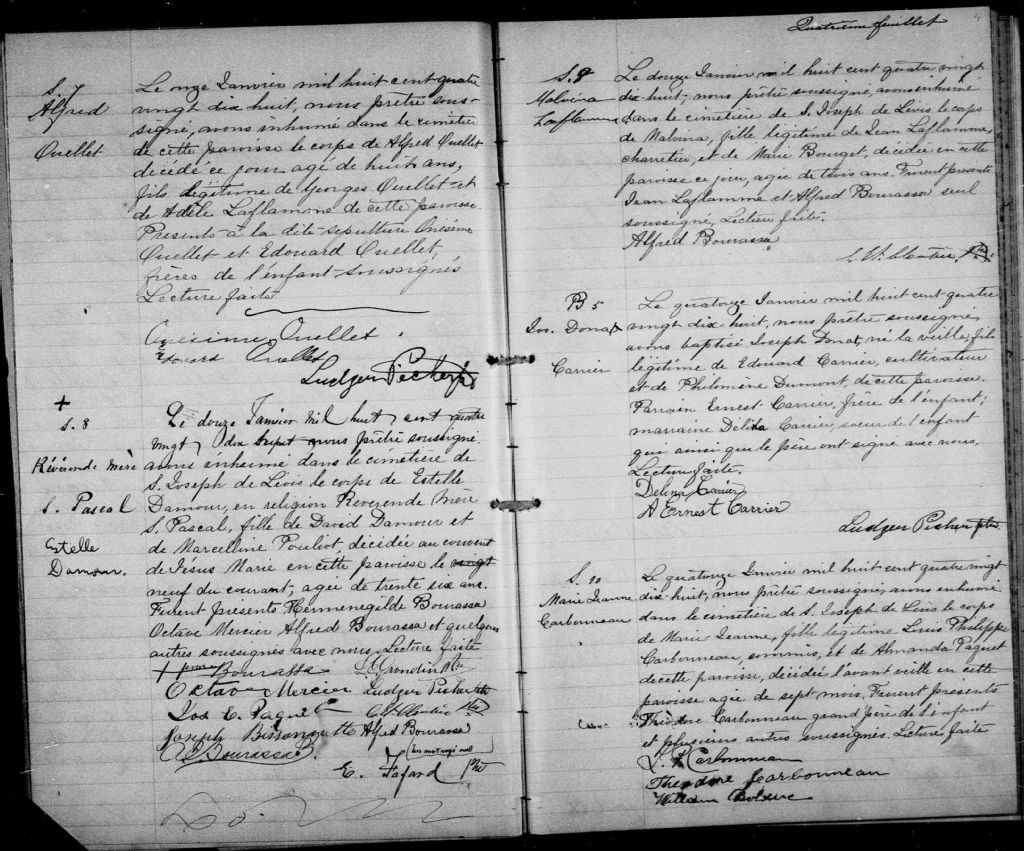 S. 7
Alfred
Ouellet
Le onze Janvier mil huit cent quatre
vingt dix huit, nous prêtre sous-
signé, avons inhumé dans le cimetière
de cette paroisse le corps de Alfred Ouellet
décédé ce jour agé de huit ans,
fils légitime de Georges Ouellet et
de Adèle Laflamme de cette paroisse.
Présents à la dite sépulture Onésime
Ouellet et Edouard Ouellet,
frères de l'enfant soussignés
Lecture faite
Onésime Ouellet.
Edouard Ouellet
Ludger Picher ptre
+
S. 8
Révérende Mère
S. Pascal
Estelle
Damour.
Le douze Janvier mil huit cent quatre
vingt dix huit nous prêtre soussigné
avons inhumé dans le cimetière de
S. Joseph de Lévis le corps de Estelle
Damour, en religion Révérende Mère
S. Pascal, fille de David Damour et
de Marcelline Pouliot, décédée au couvent
de Jésus Marie en cette paroisse le vingt
neuf du courant, agée de trente six ans.
Furent présents Hermenegilde Bourassa
Octave Mercier Alfred Bourassa et quelques
autres soussignés avec nous. Lecture faite
Bourassa
Octave Mercier Ludger Picher ptre
Jos E. Paquet
Joseph Bissonnette Alfred Bourassa
Bourassa
un mot rayé nul
E. Fafard Ptre
Quatrième feuillet
4
S. 9
Malvina
Laflamme
Le douze Janvier mil huit cent quatre vingt
dix huit, nous prêtre soussigné, avons inhumé
dans le cimetière de S. Joseph de Lévis le corps
de Malvina, fille légitime de Jean Laflamme,
charretier, et de Marie Bourget, décédée en cette
paroisse ce jour, agée de trois ans. Furent présents
Jean Laflamme et Alfred Bourassa seul
soussigné, Lecture faite.
Alfred Bourassa
B 5
Jos. Donat
Carrier
Le quatorze Janvier mil huit cent quatre
vingt dix huit, nous prêtre soussigné,
avons baptisé Joseph Donat, né la veille, fils
légitime de Edouard Carrier, cultivateur
et de Philomène Dumont, de cette paroisse.
Parrain Ernest Carrier, frère de l'enfant;
marraine Delina Carrier, soeur de l'enfant
qui ainsi que le père ont signé avec nous.
Lecture faite.
Delina Carrier
A Ernest Carrier
Ludger Picher ptre
S. 10
Marie Jeanne
Carbonneau
Le quatorze Janvier mil huit cent quatre vingt
dix huit, nous prêtre soussigné, avons inhumé
dans le cimetière de S. Joseph de Lévis le corps
de Marie Jeanne, fille légitime Louis Philippe
Carbonneau, commis, et de Amanda Paquet
de cette paroisse, décédée l'avant veille en cette
paroisse agée de sept mois. Furent présents
Théodore Carbonneau grand père de l'enfant
et plusieurs autres soussignés. Lecture faite
Carbonneau
Theodore Carbonneau
William